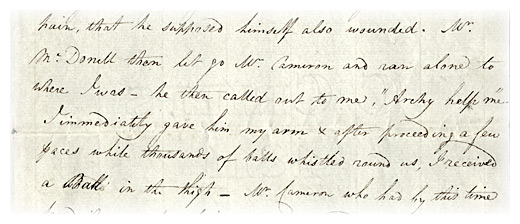 pain, that he supposed himself also wounded. Mr.
Mc. Donell then let go Mr. Cameron and ran alone to
where I was – he then called out to me, "Archy help me"
I immediatily gave him my arm & after proceeding a few
paces while thousands of balls whistled round us, I received
a Ball in the thigh – Mr. Cameron who had by this time